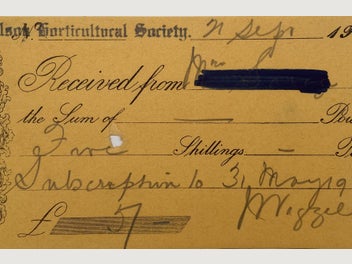 lson Horticultural Society. 21 Sept 19
Received from Mrs
the Sum of — Pou
Five Shillings — P
Subscription to 31 May 19
£ 5/-